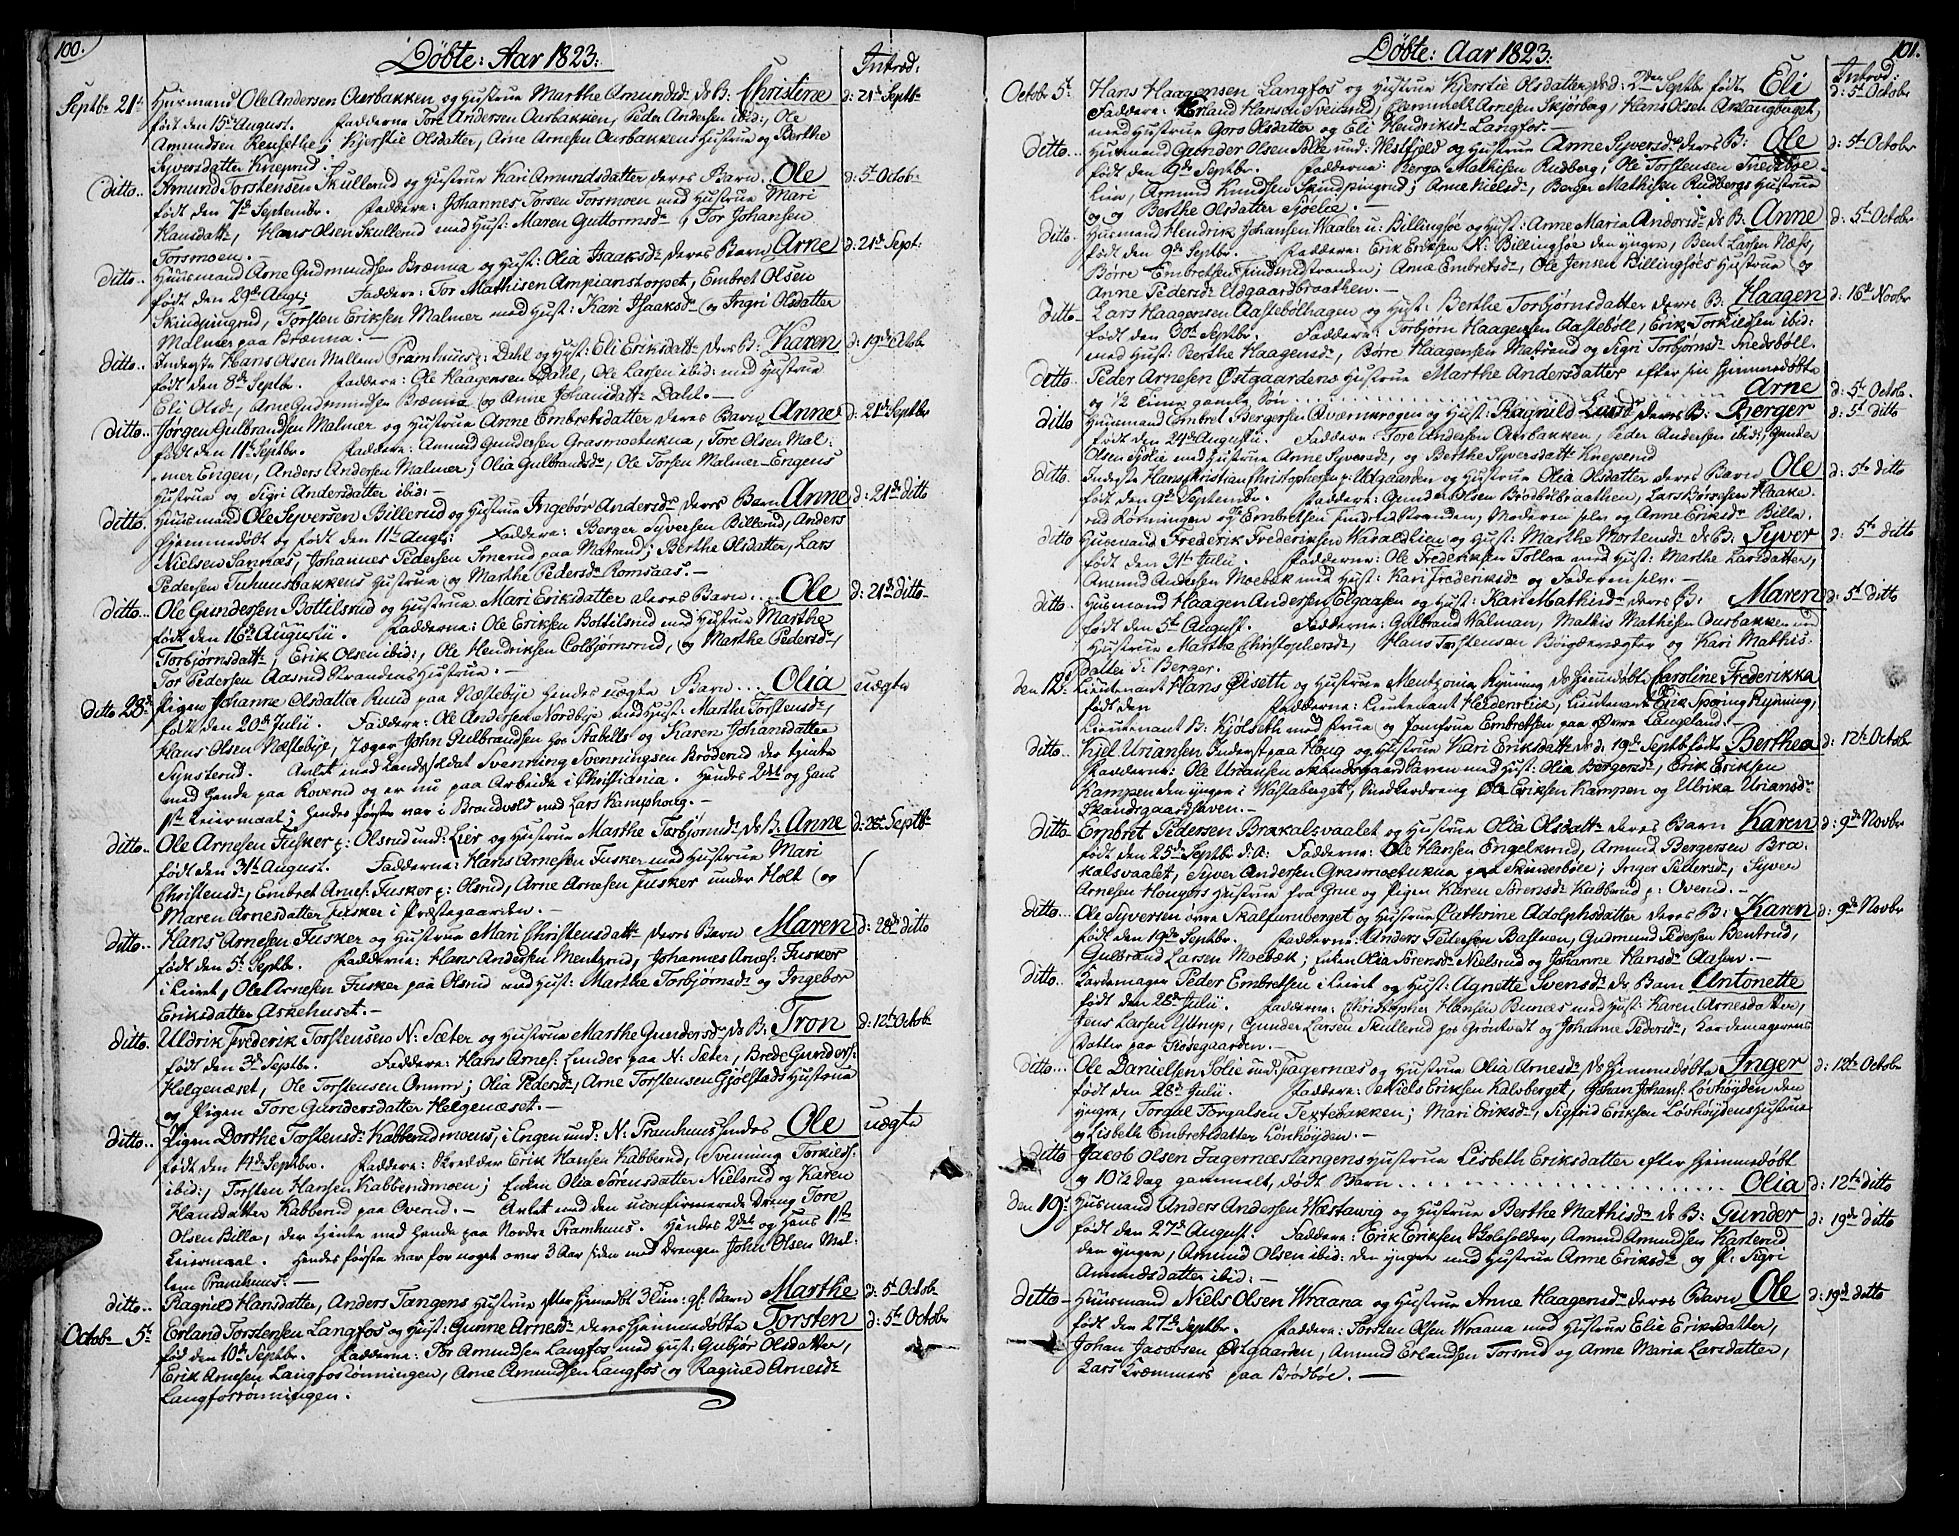 100.
Døbte: Aar 1823.
Introd:
Septbr 21. Huusmand Ole Andersen Aurbakken og Hustrue Marthe Amundsd. Ds B: Christine d: 21de Septbr
født den 15de August. Fadderne Tore Andersen Aurbakken, Peder Andersen ibid:, Ole
Amundsen Rensethe; Kjerstie Olsdatter, Arne Arnesen Aurbakkens Hustrue og Berthe
Syversdatter Kneprud.
Ditto.. Amund Torstensen Skullerud og Hustrue Kari Amundsdatter deres Barn. Ole d: 5te Octob.
født den 7de Septembr. Faddere: Johannes Torsen Torsmoen med Hustrue Mari
Hansdatt., Hans Olsen Skullerud med Hust: Maren Guttormsd., Tor Johansen
Torsmoen.
Ditto.. Huusmand Arne Gudmundsen Brænna og Hust: Olia Isaaksd. deres Barn Arne d: 21de Sept:
født den 29de Aug: Faddere: Tor Mathisen Ampianstorpet, Embret Olsen
Skindpingrud, Torsten Eriksen Malmer med Hust: Kari Isaaksd. og Ingri Olsdatter
Malmer paa Brænna. –
Ditto.. Inderste Hans Olsen Mellem Pramhuus p: Dahl og Hust: Eli Eriksdatt. deres B: Karen d: 19de Octobr
født den 8de Septbr. Faddere: Ole Haagensen Dahl, Ole Larsen ibid: med Hustrue
Eli Olsd., Arne Gudmundsen Brænna og Anne Johansdatt. Dahl. –
Ditto.. Jørgen Gulbrandsen Malmer og Hustrue Anne Embretsdatter deres Barn Anne d: 21de Septbr
født den 11te Septbr. Faddere: Amund Gundersen Grasmoetukna, Tore Olsen Mal:
mer Engen, Anders Andersen Malmer; Olia Gulbrandsd., Ole Torsen Malmer-Engens
Hustrue og Sigri Andersdatter ibid: –
Ditto. Huusmand Ole Syversen Billerud og Hustrue Ingebør Andersd. deres Barn Anne d: 21de ditto
hjemmedøbt og født den 11te Aug: Faddere: Berger Syversen Billerud, Anders
Nielsen Sannæs, Johannes Pedersen Smerud paa Matrand; Berthe Olsdatter, Lars
Pedersen Tuhuusbakkens Hustrue og Marthe Pedersd. Romsaas. –
Ditto.. Ole Gundersen Bottilsrud og Hustrue Mari Eriksdatter deres Barn... Ole d: 21de ditto
født den 16de Augustii. Fadderne: Ole Eriksen Bottilsrud med Hustrue Marthe
Torbjørnsdatt., Erik Olsen ibid:, Ole Hendriksen Colbjørnsrud, og Marthe Pedersd.,
Tor Pedersen Aasnes Strandens Hustrue. –
Ditto 28de Pigen Johanne Olsdatter Ruud paa Næstebye hendes uægte Barn... Olia uægte
født den 20de Julii. Faddere: Ole Andersen Nordbye med Hust: Marthe Torstensd.,
Hans Olsen Næstebye, Jæger John Gulbrandsen hos Stabells og Karen Johansdatter
Synsterud. Avlet med Landsoldat Svenning Svenningsen Brøderud der tjente
med hende paa Roverud og er nu paa Arbeide i Christiania. Hendes 2det og hans
1ste Leiermaal; hendes første var i Brandvold med Lars Kamphoug. –
Ditto.. Ole Arnesen Fusker p: Olsrud und: Lier og Hustrue Marthe Torbjørnsd. Ds B: Anne d: 28de Septbr
født den 31te August. Fadderne: Hans Arnesen Fusker med Hustrue Mari
Christensd., Embret Arnes: Fusker p: Olsrud, Arne Arnesen Fusker under Holt og
Maren Arnesdatter Fusker i Præstegaarden. –
Ditto.. Hans Arnesen Fusker og Hustrue Mari Christensdatt. deres Barn Maren d: 28de ditto
født den 5te Septbr. Fadderne: Hans Andersen Mentzrud, Johannes Arnes: Fusker
i Leiret, Ole Arnesen Fusker paa Olsrud med Hust: Marthe Torbjørnsd. og Ingebor
Eriksdatter Askehuset. –
Ditto. Uldrik Frederik Torstensen N: Sæter og Hustrue Marthe Gundersd. Ds B: Tron d: 12te Octob.
født den 3de Septbr. Faddere: Hans Arnes: Linder paa N: Sæter, Brede Gunders:
Helgenæset, Ole Torstensen Omm; Olia Pedersd., Arne Torstensen Gjølstads Hustrue
og Pigen Tore Gundersdatter Helgenæset. –
Ditto.. Pigen Dorthe Torstensd. Kabberudmoens, i Engen und: N: Pramhuus hendes Ole uægte
født den 14de Septbr. Faddere: Skredder Erik Hansen Kabberud, Svenning Torkilds:
ibid:, Torsten Hansen Kabberudmoen; Enken Olia Sørensdatter Nielsrud og Karen
Hansdatter Kabberud paa Overud. – Avlet med den uconfirmerede Dreng Tore
Olsen Billa, der tjente med hende paa Nordre Pramhuus. Hendes 2det og hans 1ste
Leiermaal. Hendes første var for noget over 3 Aar siden med Drengen John Olsen Mel-
lem Pramhuus: –
Ditto.. Ragnild Hansdatter, Anders Tangens Hustrue efter hjemedøbt 3 Uum: gl: Barn Marthe d: 5te Octob.
Octob. 5te Erland Torstensen Langfos og Hust: Gunne Arnesd. deres hjemmedøbte Torsten d: 5te Octobr
fød den 10de Septbr. Fadderne: Tor Amundsen Langfos med Hust: Gubjør Olsdatter,
Erik Arnesen Langfosrønningen, Arne Amundsen Langfos og Ragnild Arnesd.
Langfosrønningen.
Døbte: Aar 1823.
101.
Introd:
Octobr 5te Hans Haagensen Langfos og Hustrue Kjerstie Olsdatter Ds B: 2den Septbr født Eli d: 5te Octobr
Faddere: Erland Hansen Sveilund, Lammelt Arnesen Skjørberg, Hans Olsen Anlaugbøget,
med Hustrue Goro Olsdatter og Eli Hendriksd. Langfos. –
Ditto... Huusmand Gunder Olsen Sølie und: Westfjeld og Hustrue Anne Syversd. deres B: Ole d: 5te Octobr
født den 9de Septbr. Faddere: Berger Mathisen Rudberg, Ole Torstensen Fredsbøe-
Lien, Amund Knudsen Skindpingrud; Arne Nielsd., Berger Mathisen Rudbergs Hustrue
og Berthe Olsdatter Sjøelie. –
Ditto. Huusmand Hendrik Johansen Waaler u: Billingsøe og Hust: Anne Maria Andersd. Ds B. Anne d: 5te Octobr
født den 9de Septbr. Faddere: Erik Eriksen N: Billingsøe den yngre, Bent Larsen Næss,
Børre Embretsen Findsrudstranden; Anne Embretsd., Ole Jensen Billingsøes Hustrue og
Anne Pedersd. Udgaardbraathen. –
Ditto – Lars Haagensen Aastebølhagen og Hust: Berthe Torbjørnsdatter deres B: Haagen d: 16de Novbr
født den 30te Septbr. Faddere: Torbjørn Haagensen Aastebøll, Erik Torkildsen ibid:
med Hust: Berthe Haagensd., Børre Haagensen Matrand og Sigri Torbjørnsd. Fredsbøll.
Ditto. Peder Arnesen Østgaardens Hustrue Marthe Andersdatter efter sin hjemmedøbte
og 1/2 Time gamle Søn ........ Arne d: 5te Octobr.
Ditto Huusmand Embret Bergersen Avernkrogen og Hust: Ragnild Larsd. deres B: Berger d: 5te ditto
født den 24de Augustii. Faddere: Tore Andersen Aurbakken, Peder Andersen ibid:, Gunder
Olsen Sjølie med Hustrue Anne Syversd., og Berthe Syversdatt. Kneperud
Ditto. Inderste Hans Christian Christophersen p: Udgaarden og Hustrue Olia Olsdatter deres Barn Ole d: 5te ditto
født den 9de Septembr. Faddere: Gunder Olsen Brødbølbraathen, Lars Børresen Haake-
rud Rønningen og Ole Embretsen Findsrud Stranden, Moderen selv og Anne Eriksd. Billa.
Ditto Huusmand Frederik Frederiksen Haraldlien og Hust: Marthe Mortensd. Ds B: Syver d: 5te ditto
født den 31te Julii. Fadderne: Ole Frederiksen Tollaa med Hust: Marthe Larsdatter,
Amund Andersen Moebæk med Hust: Kari Frederiksd. og Faderen selv. –
Ditto. Huusmand Haagen Andersen Elgaasen og Hust: Kari Mathisd. deres B: Maren d: 5te ditto
født den 5te August. Fadderne: Gulbrand Walman, Mathis Mathisen Aurbakken med
Hustrue Marthe Christophersd., Hans Torstensen Boigdevægter og Kari Mathis-
datter s: Berger.
den 12te Lieutenant Hans Øiseth og Hustrue Mentzonia Ryning Ds hjemmdøbte Caroline Frederikka
født den Fadderne: Lieutenant Heldenreich, Lieutenant Erik Spøring Ryning,
Lieutenant B: Kjølseth med Frue og Jomfrue Embretsen paa Øvre Langeland. –
Ditto.. Kjel Uriansen Inderst paa Houg og Hustrue Kari Eriksdatt. Ds d: 19de Septbr født Berthea d: 12te Octobr
Fadderne: Ole Uriansen Skandsgaardhaven med Hust: Olia Bergersd., Erik Eriksen
Kampen den yngre i Wastaberget, Snedkerdreng Ole Eriksen Kampen og Ulrika Uriansd.
Skandsgaardhaven. –
Ditto – Embret Pedersen Brakalsvaalet og Hustrue Olia Olsdatt. deres Barn Karen d: 9de Novbr
født den 25de Septbr d: A: Fadderne: Ole Hansen Engelkerud, Amund Bergersen Bra-
kalsvaalet, Syver Andersen Grasmoetukna paa Skinderbøle; Inger Pedersd., Syver
Arnesen Hougors Hustrue fra Grue og Pigen Karen Sørensd. Kabberud p: Overud. –
Ditto... Ole Syversen øvre Skalfurnberget og Hustrue Cathrine Adolphsdatter deres B: Karen d: 9de Novbr
født den 19de Septbr. Fadderne: Anders Pedersen Bastnen, Gudmund Pedersen Bentrud,
Gulbrand Larsen Moebæk; Enken Olia Sørensd. Nielsrud og Johanne Hansd. Aasen. –
Ditto. Kardemager Peder Embretsen i Leiret og Hust: Agnette Svensd. Ds Barn Antonette
født den 28de Julii. Faddere: Christopher Hansen Bunæs med Hust: Karen Arnesdatter,
Jens Larsen Uttrup, Gunder Larsen Skullerud hos Grøntvedt og Johanne Pedersd., Kardemagerens
Datter paa Skøsegaarden. –
Ditto... Ole Danielsen Solie und: Fagernæs og Hustrue Olia Arnesd. Ds hjemmedøbte Inger d: 12te Octobr
født den 28de Julii. Faddere: Niels Eriksen Kalsberget, Johan Johans: Lovhøyden den
yngre, Torgal Torgalsen Textebakken; Mari Eriksd., Sigfrid Eriksen Lovhøydens Hustrue
og Lisbeth Embretsdatter Lønhøyden. –
Ditto – Jacob Olsen Fagernæstangens Hustrue Lisbeth Eriksdatter efter hjemmedøbt
og 10 1/2 Dag gammelt, dødt Barn ........ Olia d: 12te ditto
den 19de Huusmand Anders Andersen Wæstawig og Hustrue Berthe Mathisd. Ds B: Gunder d: 19de ditto
født den 27de August. Faddere: Erik Eriksen Bolefolder, Amund Amundsen Kasterud
den yngre, Amund Olsen ibid: den yngre med Hustrue Anne Eriksd. og P: Sigri
Amundsdatter ibid: –
Ditto – Huusmand Niels Olsen Wraana og Hustrue Anne Haagensd. deres Barn Ole d: 19de ditto
født den 27de Septbr. Faddere: Torsten Olsen Wraana med Hustrue Elie Eriksdatter,
Johan Jacobsen Østgaarden, Amund Erlandsen Torsrud og Anne Maria Larsdatter,
Lars Kræmmers paa Brødbøe. –